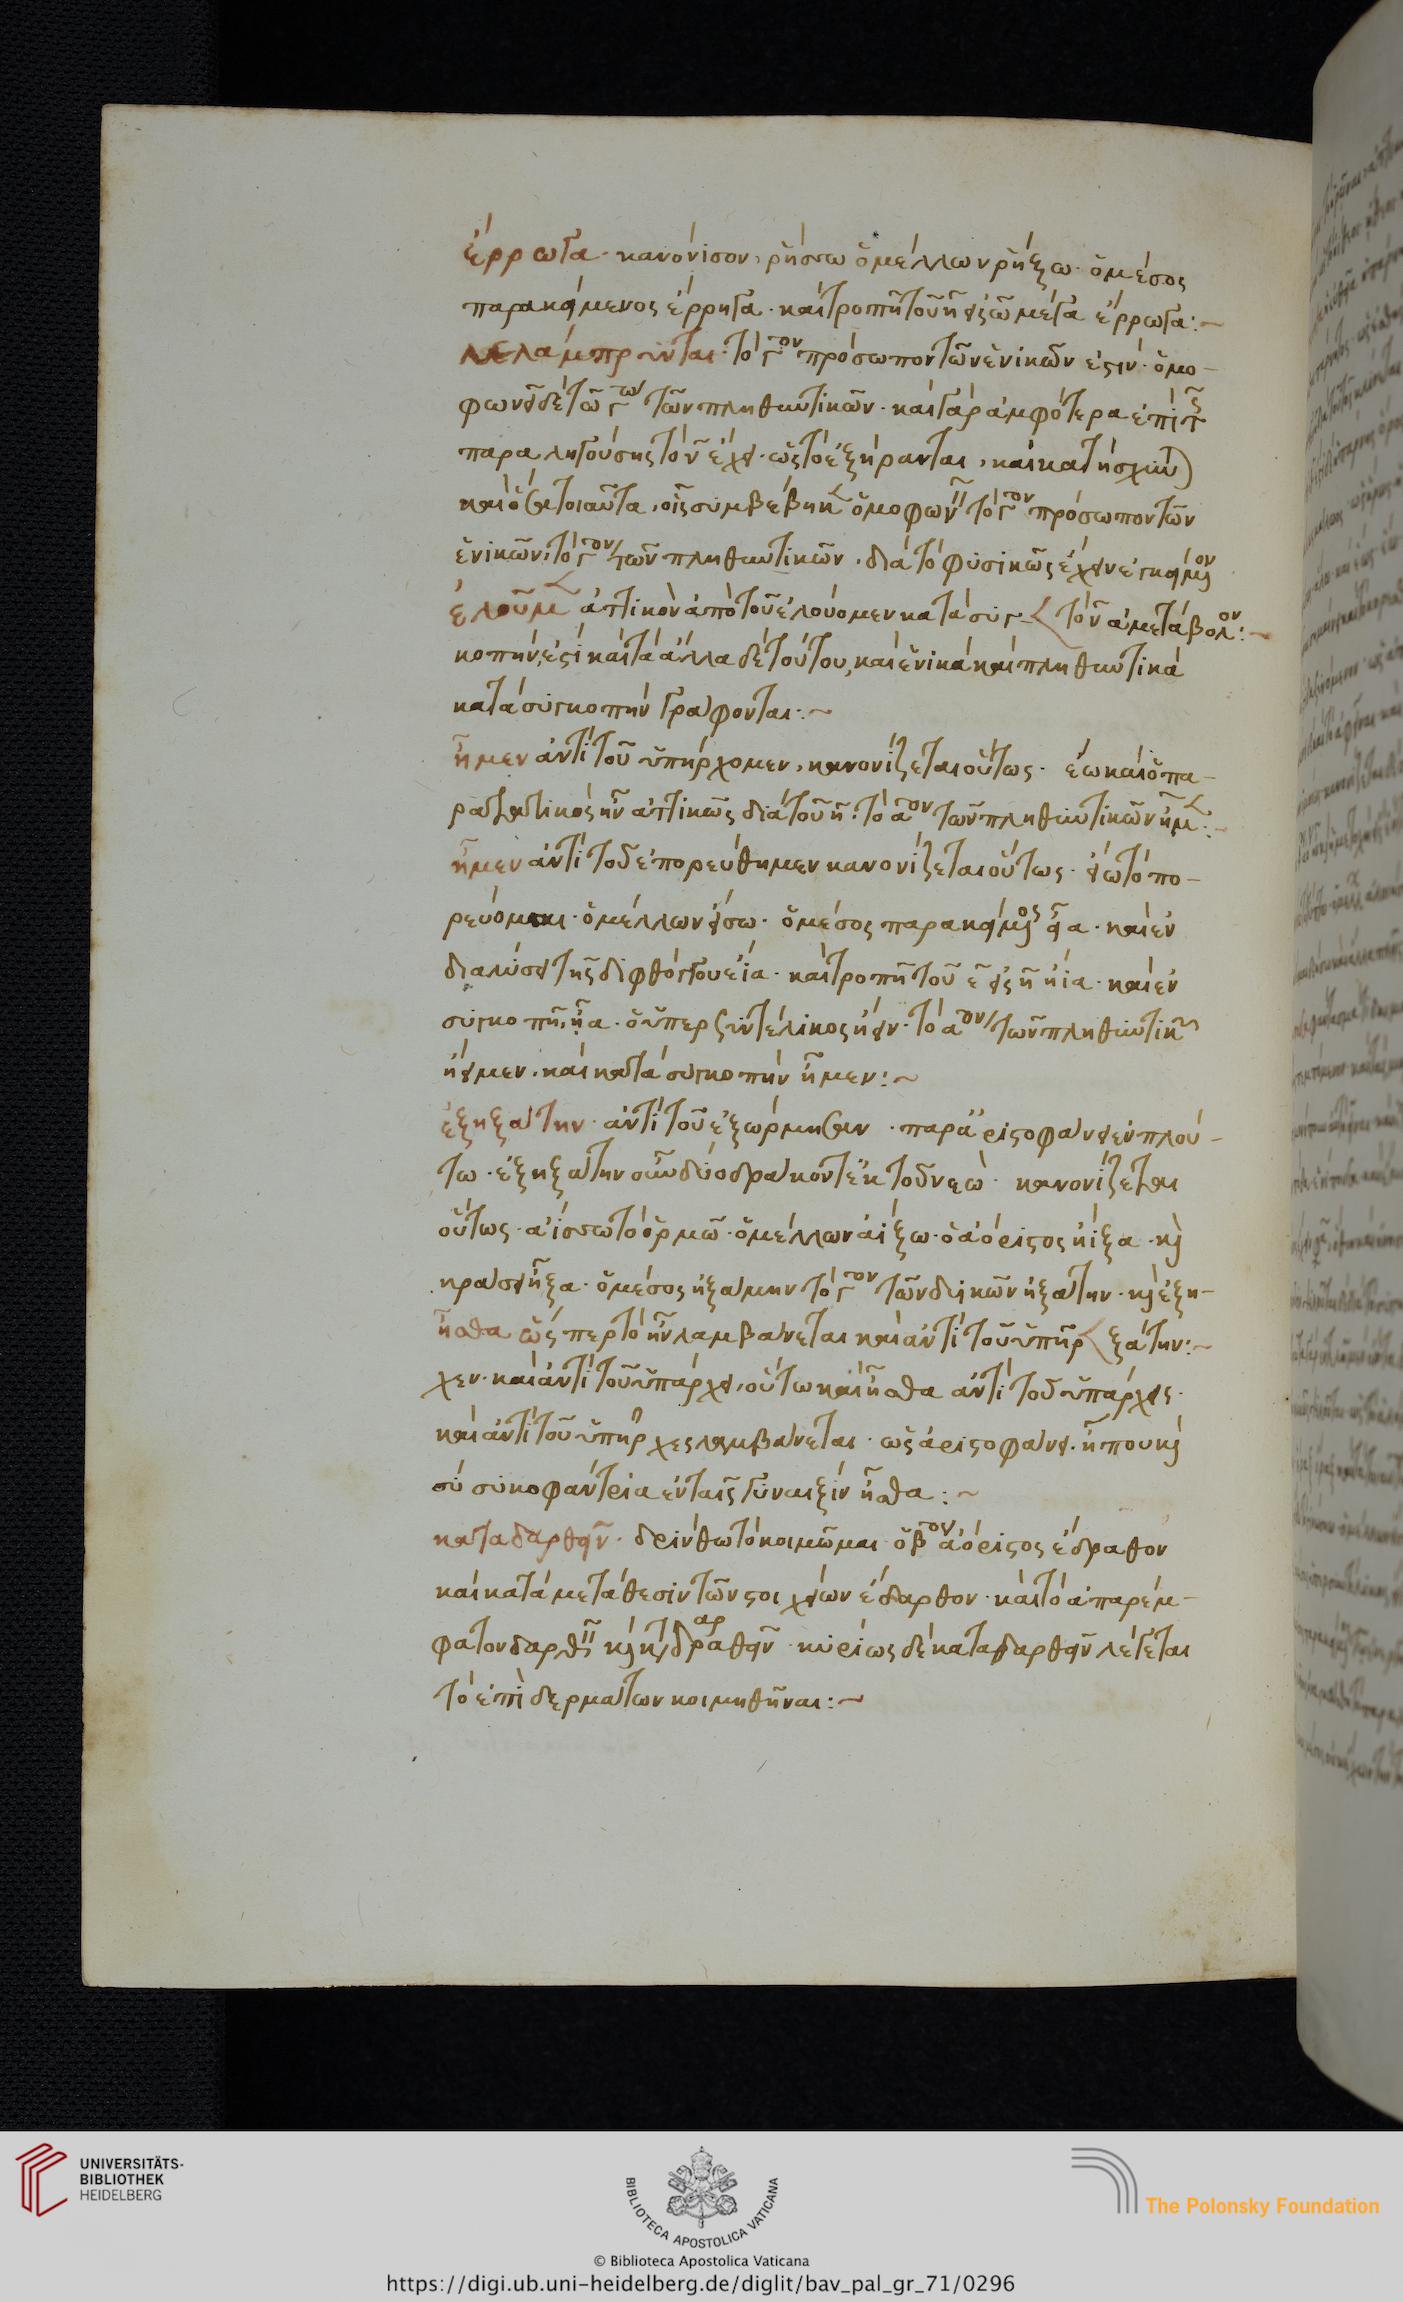 ἔρρωγα· κανόνισον, ῥήσσω ὁ μέλλων ῥήξω· ὁ μέσος
παρακείμενος ἔρρηγα· καὶ τροπῇ τοῦ η̄ εἰς ω̄ μέγα ἔρρωγα:~
λελάμπρυνται· τὸ γ̄ον πρόσωπον τῶν ἑνικῶν ἐστιν· ὁμο-
φωνεῖ δὲ τῷ γ̄ω τῶν πληθυντικῶν· καὶ γὰρ ἀμφότερα ἐπὶ τῆς
παραληγούσης τὸ ν̄ ἔχει· ὡς τὸ ἐξήρανται, καὶ κατήσχυνται
καὶ ὅσα τοιαῦτα, οἷς συμβέβηκεν ὁμοφωνεῖν τὸ γ̄ον πρόσωπον τῶν
ἑνικῶν, τὸ γ̄ον τῶν πληθυντικῶν, διὰ τὸ φυσικῶς ἔχειν ἐγκείμενον
ἐλοῦμεν ἀττικὸν ἀπὸ τοῦ ἐλούομεν κατὰ συγ- τὸ ν̄ ἀμετάβολον:~
κοπήν, ἐστὶ καὶ τὰ ἄλλα δὲ τούτου, καὶ ἑνικὰ καὶ πληθυντικὰ
κατὰ συγκοπὴν γράφονται:~
ἦμεν ἀντὶ τοῦ ὑπήρχομεν, κανονίζεται οὕτως· ἔω καὶ ὁ πα-
ρατατικὸς ἦν ἀττικῶς διὰ τοῦ η̄· τὸ ᾱον τῶν πληθυντικῶν ἦμεν:~
ἦμεν ἀντὶ τοῦ ἐπορεύθημεν κανονίζεται οὕτως· εἴω τὸ πο-
ρεύομαι· ὁ μέλλων εἴσω· ὁ μέσος παρακείμενος εἶα· καὶ ἐν
διαλύσει τῆς διφθόγγου εία· καὶ τροπῇ τοῦ ε̄ εἰς η̄ ήια· καὶ ἐν
συγκοπῇ, ἦα· οὗ ὑπερσυντέλικος ήειν· τὸ ᾱον τῶν πληθυντικῶν
ήειμεν, καὶ κατὰ συγκοπὴν ἦμεν:~
ἐξηξάτην· ἀντὶ τοῦ ἐξώρμησαν· παρ' ἀριστοφάνει ἐν πλού-
τω· ἐξηξάτην οὖν δύο δράκοντ' ἐκ τοῦ νεώ· κανονίζεται
οὕτως· ἀίσσω τὸ ὁρμῶ· ὁ μέλλων ἀίξω· ὁ ἀόριστος ήιξα· καὶ
κράσει ἦξα· ὁ μέσος ἠξάμην τὸ γ̄ον τῶν δυικῶν ἠξάτην· καὶ ἐξη-
ἦσθα ὥσπερ τὸ ἦν λαμβάνεται καὶ ἀντὶ τοῦ ὑπῆρ- ξάτην:~
χεν· καὶ ἀντὶ τοῦ ὑπάρχει, οὕτω καὶ ἦσθα ἀντὶ τοῦ ὑπάρχεις·
καὶ ἀντὶ τοῦ ὑπῆρχες λαμβάνεται· ὡς ἀριστοφάνει· ἦ που καὶ
σὺ συκοφάντρια ἐν ταῖς γυναιξὶν ἦσθα:~
καταδαρθεῖν· δρίνθω τὸ κοιμῶμαι ὁ β̄ον ἀόριστος ἔδραθον
καὶ κατὰ μετάθεσιν τῶν στοιχείων ἔδαρθον· καὶ τὸ ἀπαρέμ-
φατον δαρθεῖν καὶ δραθεῖν· κυρίως δὲ καταδαρθεῖν λέγεται
τὸ ἐπὶ δερμάτων κοιμηθῆναι:~
UNIVERSITÄTS-
BIBLIOTHEK
HEIDELBERG
BIBLIOTECA APOSTOLICA VATICANA
The Polonsky Foundation
© Biblioteca Apostolica Vaticana
https://digi.ub.uni-heidelberg.de/diglit/bav_pal_gr_71/0296